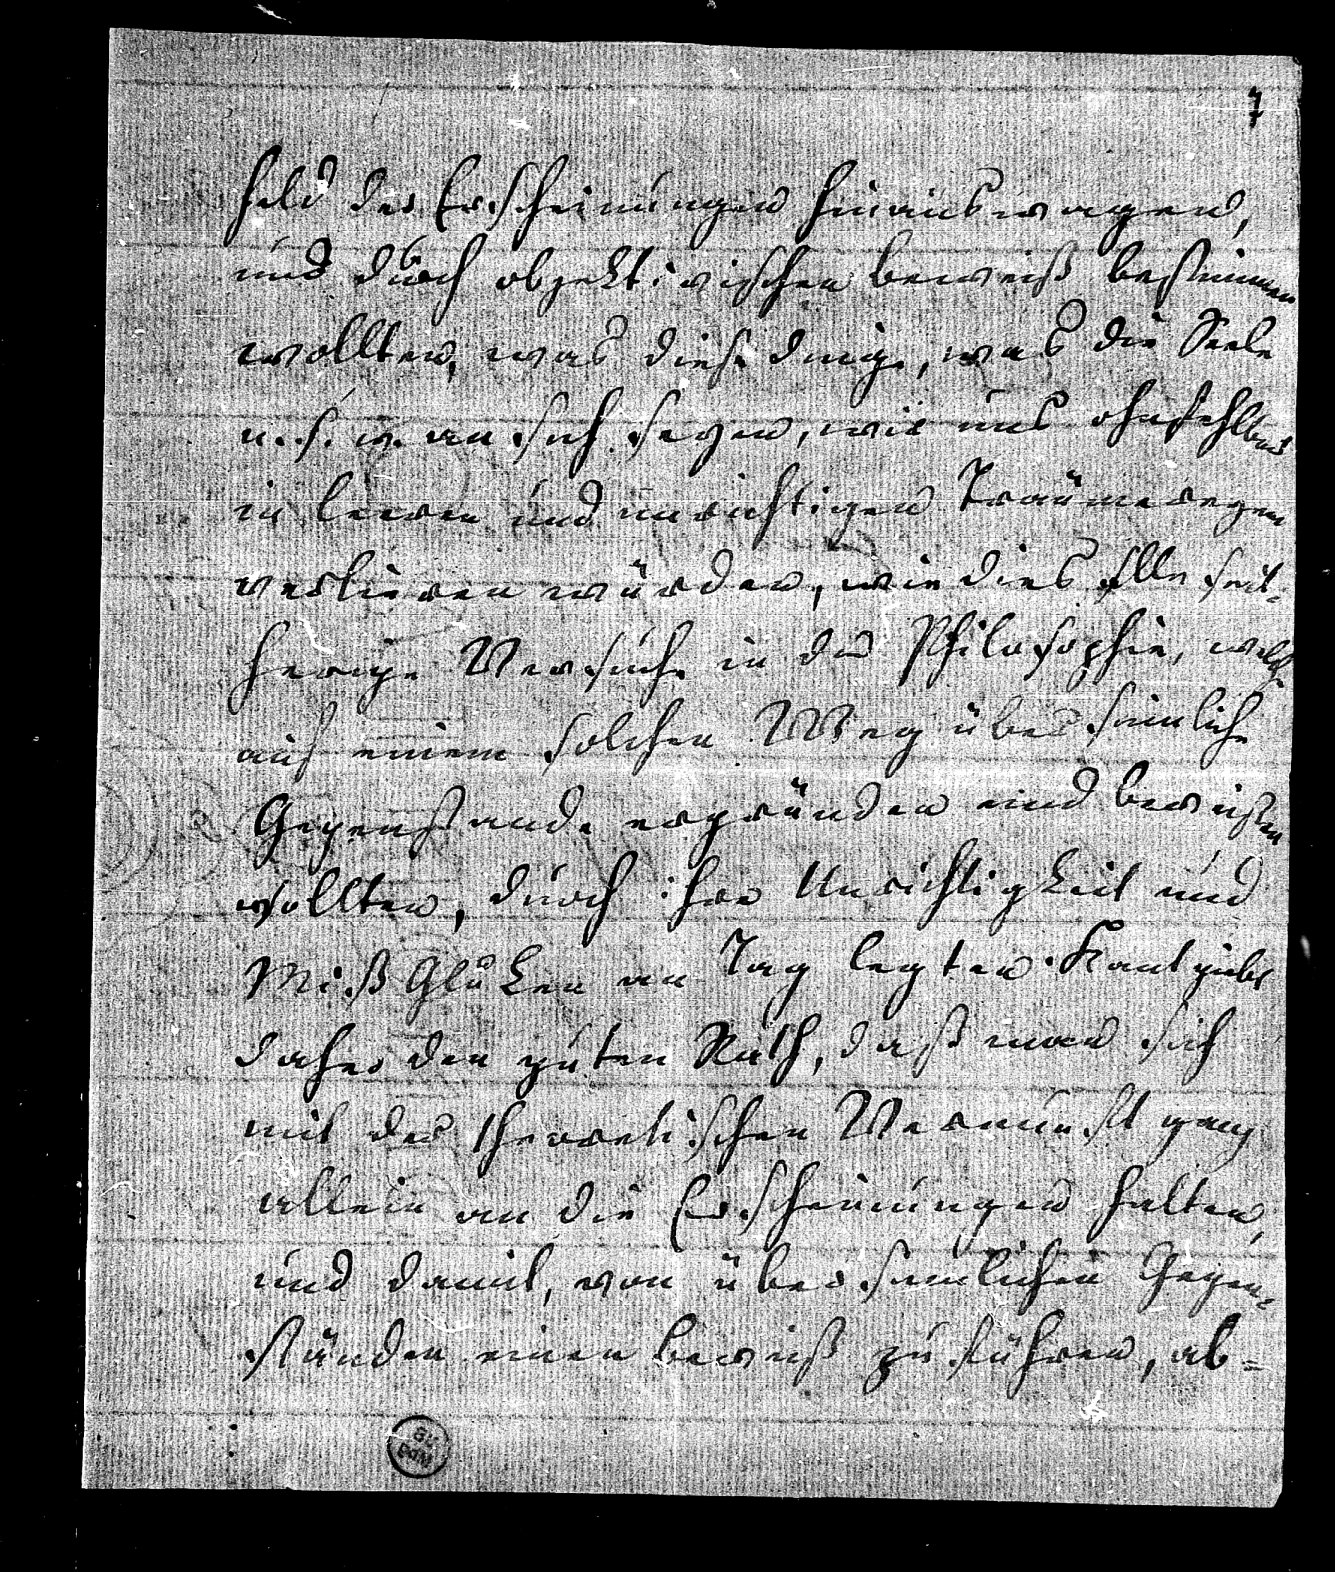 7
Feld der Erscheinungen hinauswagen,
und durch objektivischen beweiß bestimmen
wollten, was diese dinge, was die Seele
u. s. w. an sich seyen, wir uns ohnfehlbar
in leeren und unrichtigen Träumereyen
verlieren würden, wie dies alle seit-
herige Versuche in der Philosophie, welche
auf einem solchen Weg übersinnliche
Gegenstände ergründen und beweisen
wollten, durch ihre Unrichtigkeit und
Mißglüken an Tag legten. Kant giebt
daher den guten Rath, daß man sich
mit der theoretischen Vernunft ganz
allein an die Erscheinungen halten,
und damit, von übersinnlichen Gegen-
ständen einen beweiß zu führen, ab-